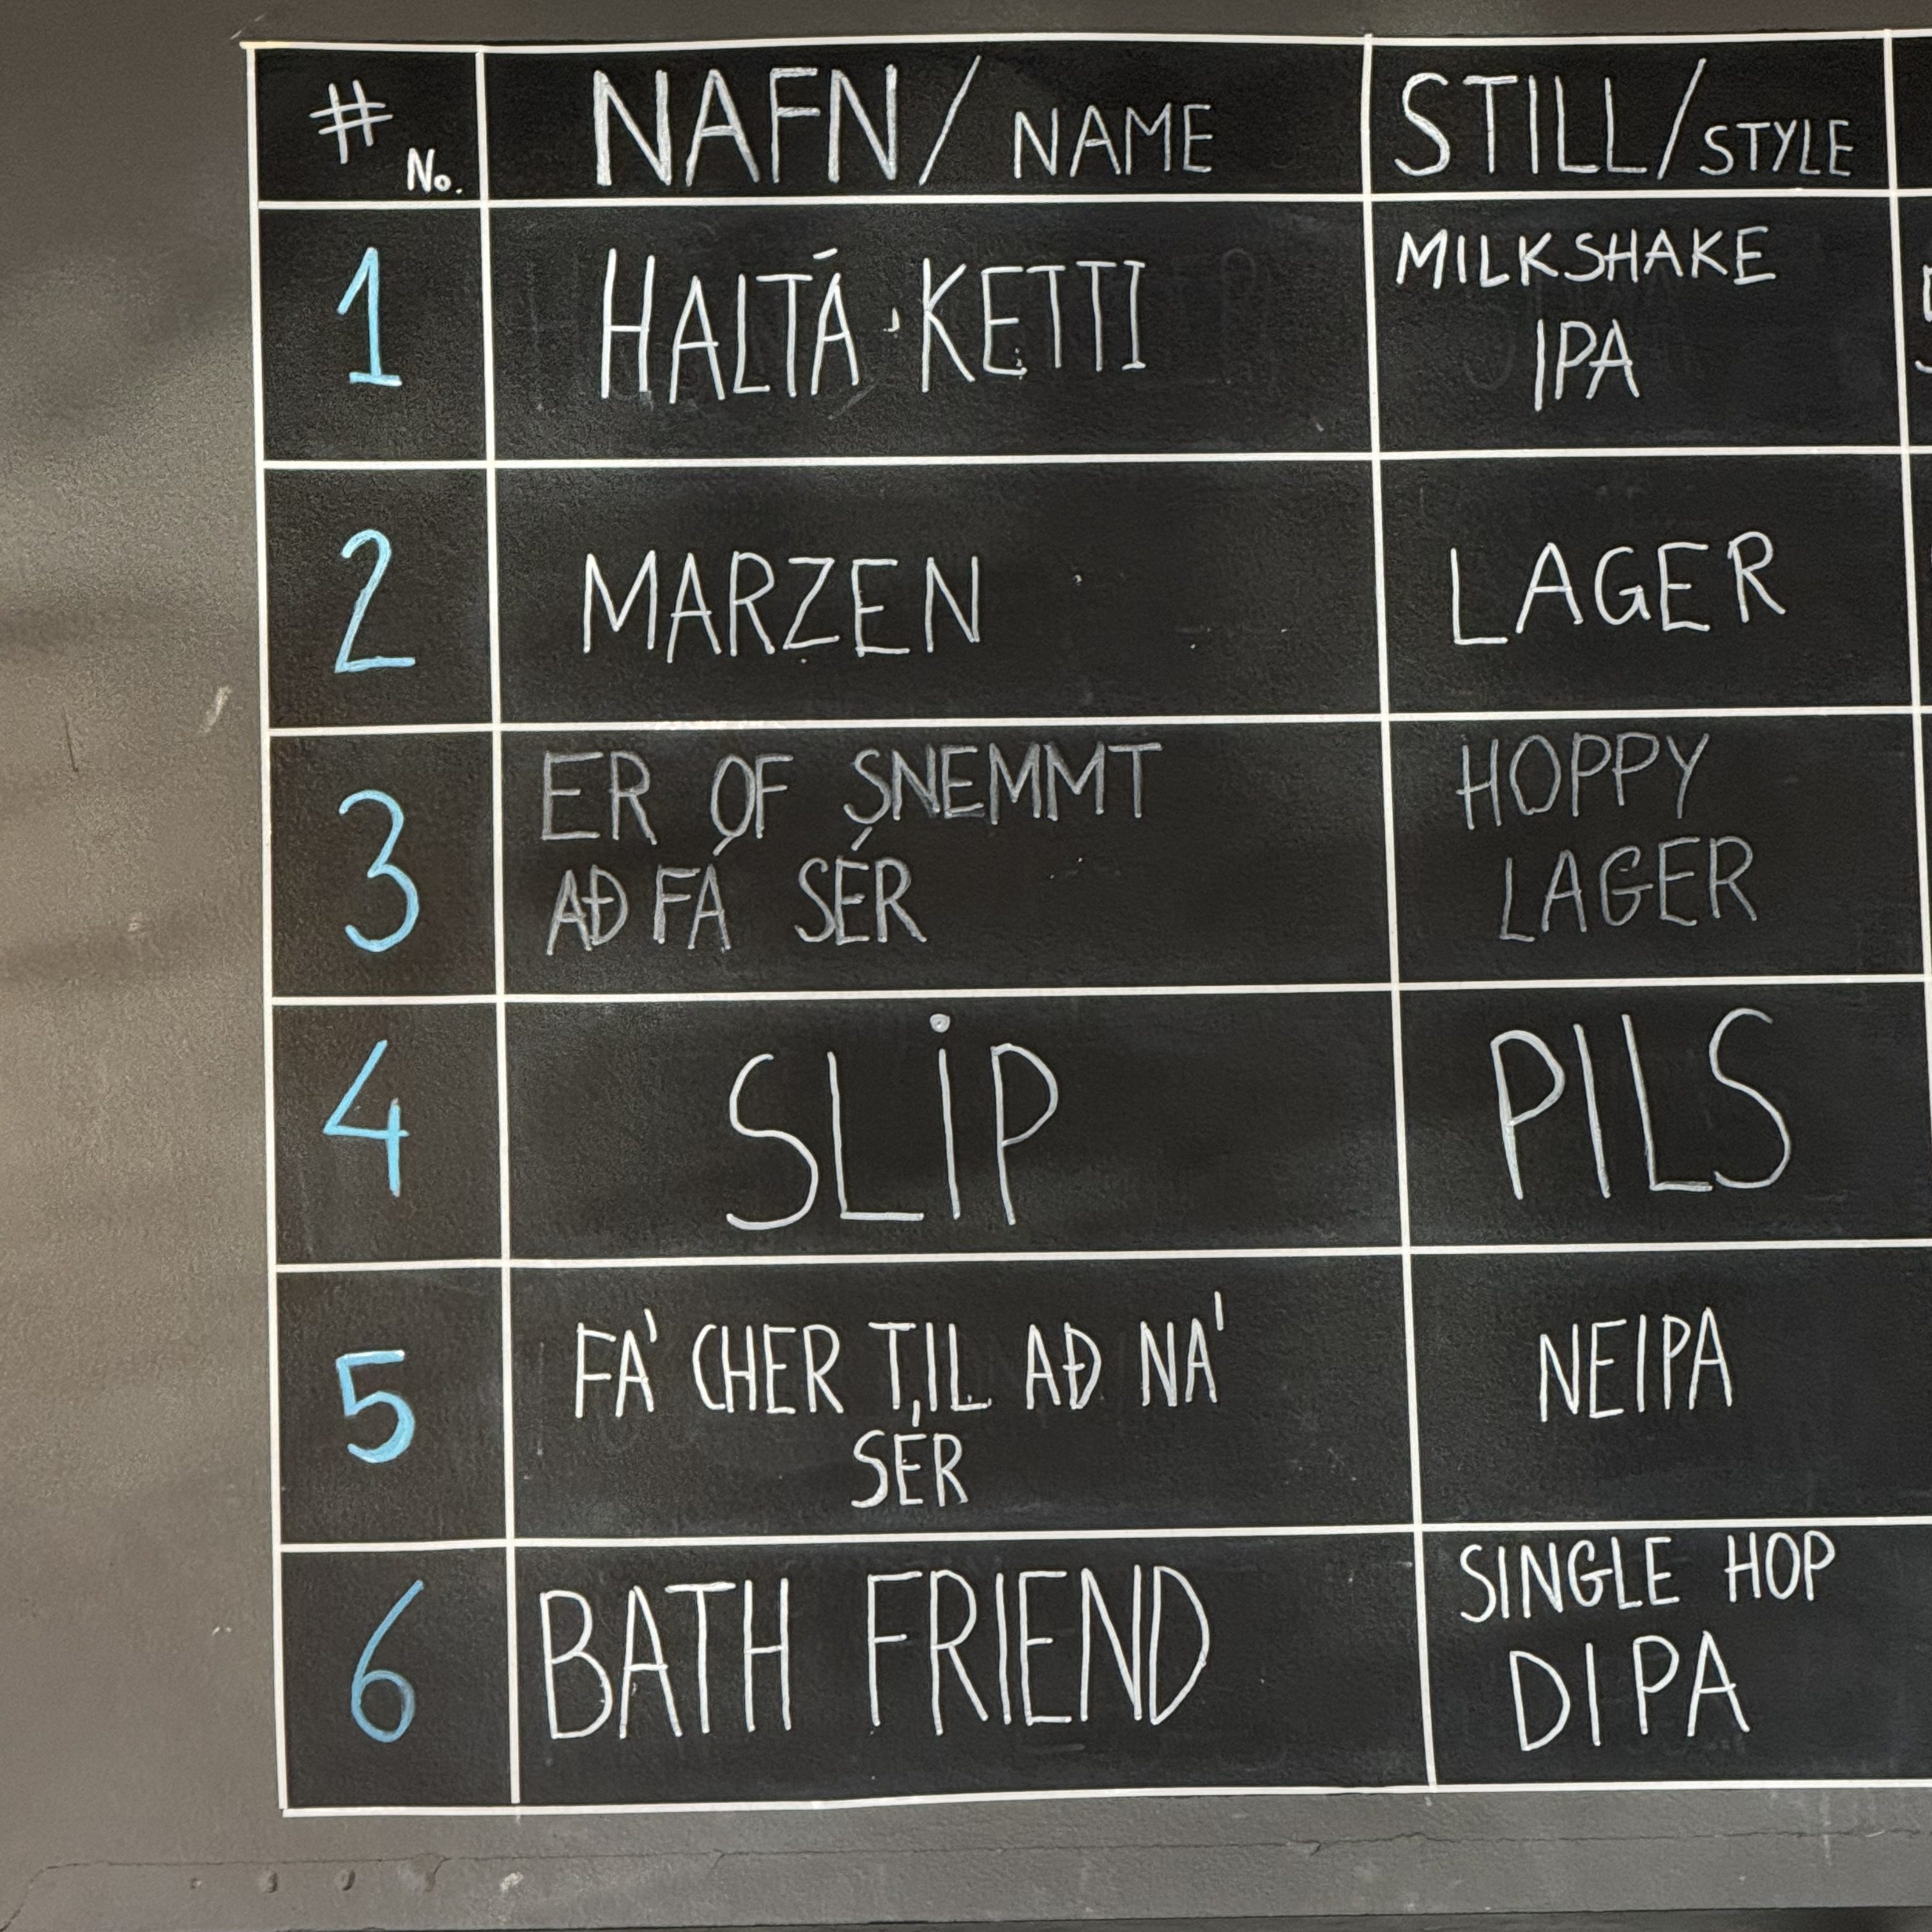 # No. NAFN/ NAME STILL/STYLE
1 HALTÁ KETTI MILKSHAKE
IPA
2 MARZEN LAGER
3 ER OF SNEMMT HOPPY
AÐ FÁ SÉR LAGER
4 SLİP PILS
5 FÁ CHER TIL AÐ NÁ NEIPA
SÉR
6 BATH FRIEND SINGLE HOP
DIPA